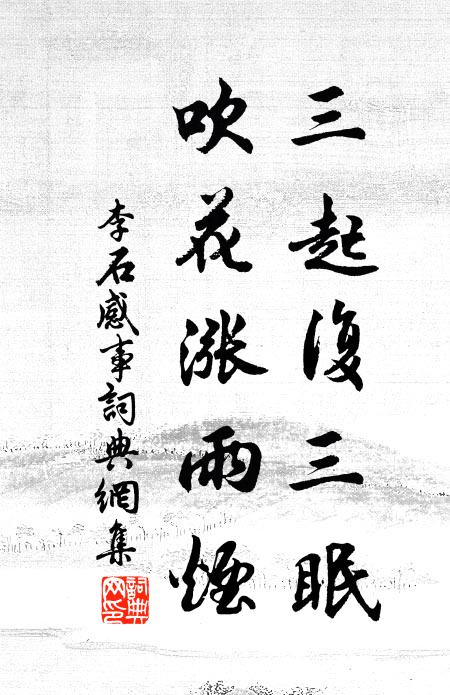 三起復三眠
吹花漲雨煙
李石感事詞典網集
詞典网印